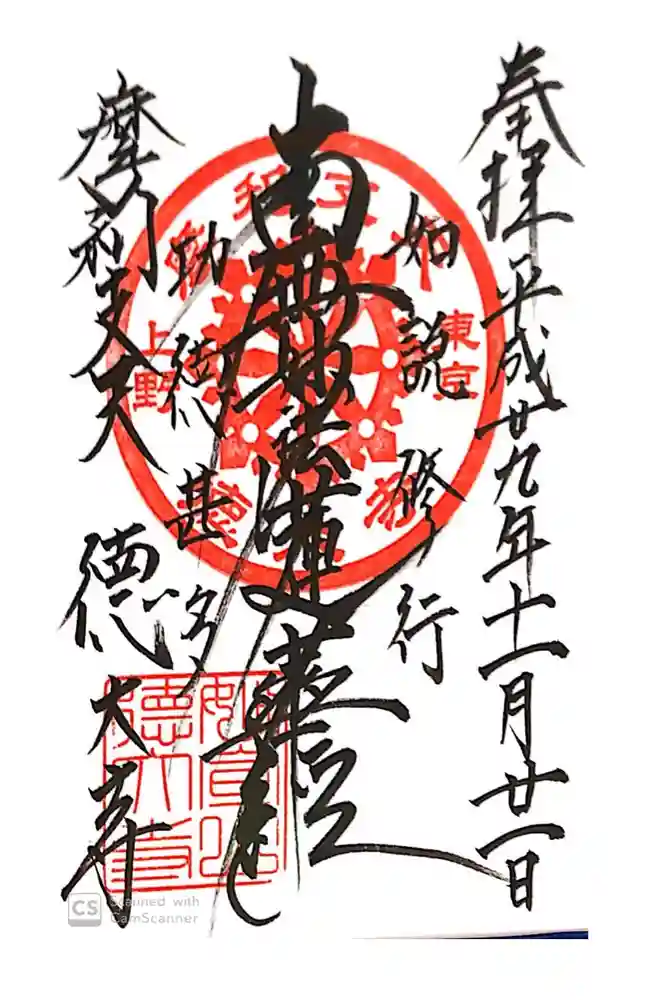 奉拝 平成廿九年十一月廿一日
如説修行
南無妙法蓮華経
功徳甚多
摩利支天
徳大寺
東京
上野
妙宣山
徳大寺
CS Scanned with
CamScanner